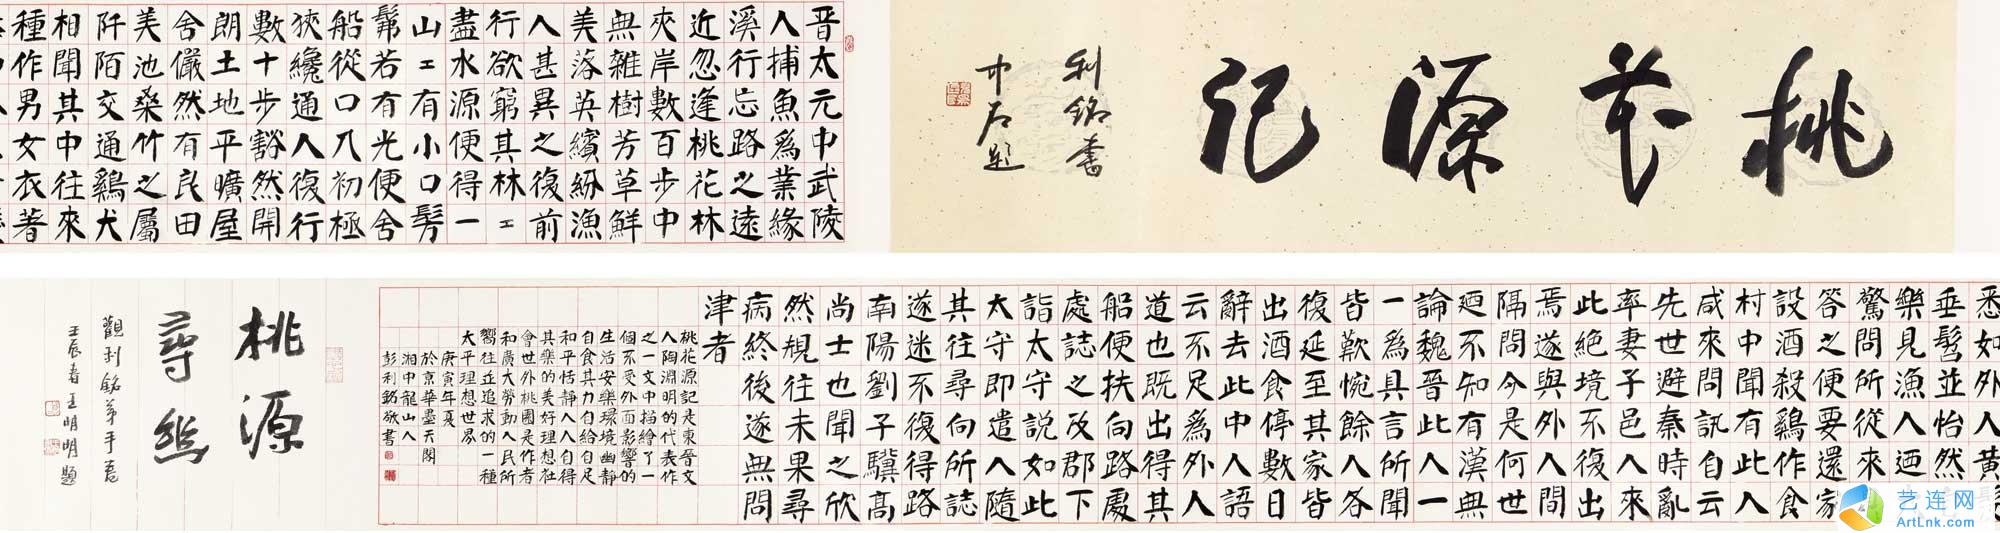 桃花源记
利銘書
中石題
晋太元中武陵
人捕魚爲業緣
溪行忘路之遠
近忽逢桃花林
夾岸數百步中
無雜樹芳草鮮
美落英繽紛漁
人甚異之復前
行欲窮其林〻
盡水源便得一
山〻有小口髣
髴若有光便舍
船從口入初極
狹纔通人復行
數十步豁然開
朗土地平曠屋
舍儼然有良田
美池桑竹之屬
阡陌交通鷄犬
相聞其中往來
種作男女衣著
悉如外人黃
垂髫並怡然
樂見漁人迺
驚問所從來
答之便要還家
設酒殺鷄作食
村中聞有此人
咸來問訊自云
先世避秦時亂
率妻子邑人來
此絕境不復出
焉遂與外人間
隔問今是何世
迺不知有漢無
論魏晉此人一
一爲具言所聞
皆歎惋餘人各
復延至其家皆
出酒食停數日
辭去此中人語
云不足爲外人
道也既出得其
船便扶向路處
處誌之及郡下
詣太守説如此
太守即遣人隨
其往尋向所誌
遂迷不復得路
南陽劉子驥高
尚士也聞之欣
然規往未果尋
病終後遂無問
津者
桃花源記是東晉文
人陶淵明的代表作
之一文中描繪了一
個不受外面影響的
生活安樂環境幽靜
自食其力自給自足
和平恬靜人人自得
其樂的美好理想社
會世外桃園是作者
和廣大勞動人民所
嚮往並追求的一種
太平理想世界
庚寅年夏
於京華盡天閣
湘中龍山人
彭利銘敬書
桃源
尋幽
觀利銘弟手卷
壬辰春王明明題
艺连网
ArtLnk.com